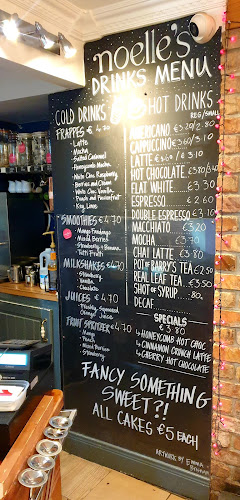 noelle's
DRINKS MENU
COLD DRINKS
FRAPPES €4.70
- Latte
- Mocha
- Salted Caramel
- White Choc Raspberry
- Berries and Cream
- White Choc Vanilla
- Peach and Passionfruit
- Key Lime
SMOOTHIES €4.70
- Mango Fandango
- Mixed Berries
- Strawberry + Banana
- Tutti Frutti
MILKSHAKES €4.70
- Strawberry
- Vanilla
- Chocolate
JUICES €4.70
- Freshly Squeezed
Orange Juice
FRUIT SPRITZER €4.70
- Mango
- Peach
- Mixed Berries
- Strawberry
HOT DRINKS
REG/SMALL
AMERICANO €3.20/2.80
CAPPUCCINO €3.60/3.10
LATTE €3.60/€3.10
HOT CHOCOLATE €3.80/3.40
FLAT WHITE €3.30
ESPRESSO €2.60
DOUBLE ESPRESSO €3.10
MACCHIATO €3.20
MOCHA €3.70
CHAI LATTE €3.80
POT OF BARRY'S TEA €2.50
REAL LEAF TEA €3.50
SHOT OF SYRUP .80
DECAF
SPECIALS
€3.80
HONEYCOMB HOT CHOC
CINNAMON CRUNCH LATTE
CHERRY HOT CHOCOLATE
FANCY SOMETHING
SWEET?!
ALL CAKES €5 EACH
ARTWORK BY EMMA